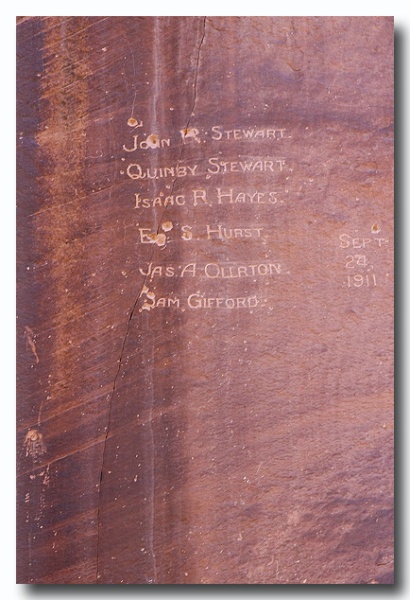 John R. Stewart.
Quinby Stewart.
Isaac R. Hayes.
S. Hurst.
Jas. A. Ollrton.
Sam Gifford.
Sept.
28
1911